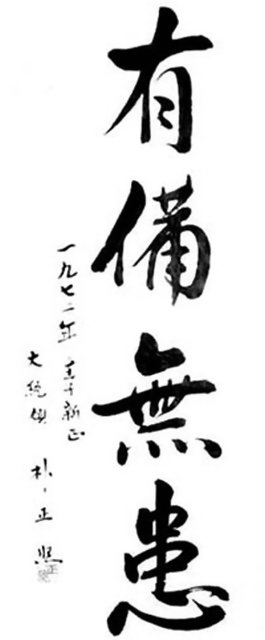 有備無患
一九七二年 壬子新正
大統領 朴正熙